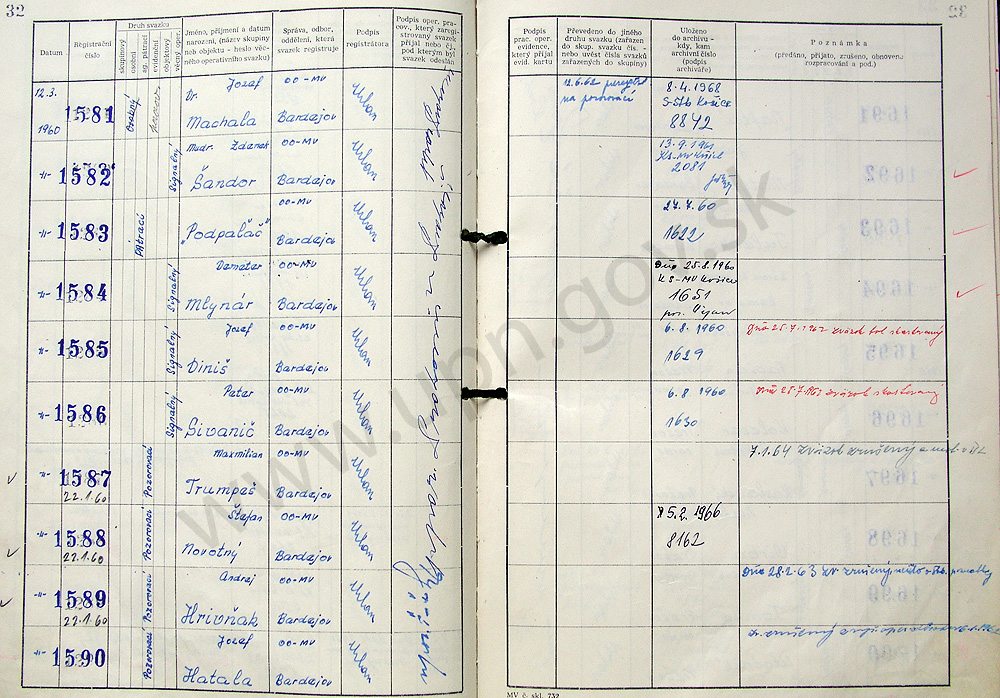 32
Datum
Registrační číslo
Druh svazku
skupinový
osobní
ag. pátrací
evidenční
objektový
věcný oper.
Jméno, příjmení a datum
narození, (název skupiny
neb objektu - heslo věc-
ného operativního svazku)
Správa, odbor,
oddělení, která
svazek registruje
Podpis
registrátora
Podpis oper. pra-
cov., který zaregi-
strovaný svazek
přijal nebo čj.,
pod kterým byl
svazek odeslán
Podpis
prac. oper.
evidence,
který přijal
evid. kartu
Převedeno do jiného
druhu svazku (zařazen
do skup. svazku čís. -
nebo uvést čísla svazků
zařazených do skupiny)
Uloženo
do archivu -
kdy, kam
archivní číslo
(podpis
archiváře)
Poznámka
(předáno, přijato, zrušeno, obnoveno
rozpracování a pod.)
12.3.
1960
1581
Osobný
Dr. Jozef
Machala
OO-MV
Bardejov
Urban
12.6.62
na pozorovací
8.4.1968
S-ŠtB Košice
8842
-"-
1582
Signálny
Mudr. Zdenek
Šandor
OO-MV
Bardejov
Urban
13.9.1961
KS-MV Košice
2081
-"-
1583
Pátrací
„Podpaľač"
OO-MV
Bardejov
Urban
27.7.60
1622
-"-
1584
Signálny
Demeter
Mlynár
OO-MV
Bardejov
Urban
Dňa 25.8.1960
KS-MV Košice
1651
-"-
1585
Signálny
Jozef
Diniš
OO-MV
Bardejov
Urban
6.8.1960
1629
Dňa 25.7.1962 zväzok bol skartovaný
-"-
1586
Signálny
Peter
Sivanič
OO-MV
Bardejov
Urban
6.8.1960
1630
Dňa zväzok skartovaný
-"-
1587
22.1.60
Pozorovací
Maxmilian
Trumpeš
OO-MV
Bardejov
Urban
7.1.64 Zväzok zrušený
-"-
1588
22.1.60
Pozorovací
Štefan
Novotný
OO-MV
Bardejov
Urban
5.2.1966
8162
-"-
1589
22.1.60
Pozorovací
Andrej
Hrivňak
OO-MV
Bardejov
Urban
Dňa 28.2.63 zv. zrušený
-"-
1590
Pozorovací
Jozef
Hatala
OO-MV
Bardejov
Urban
zrušený
MV č. skl. 732
www.upn.gov.sk